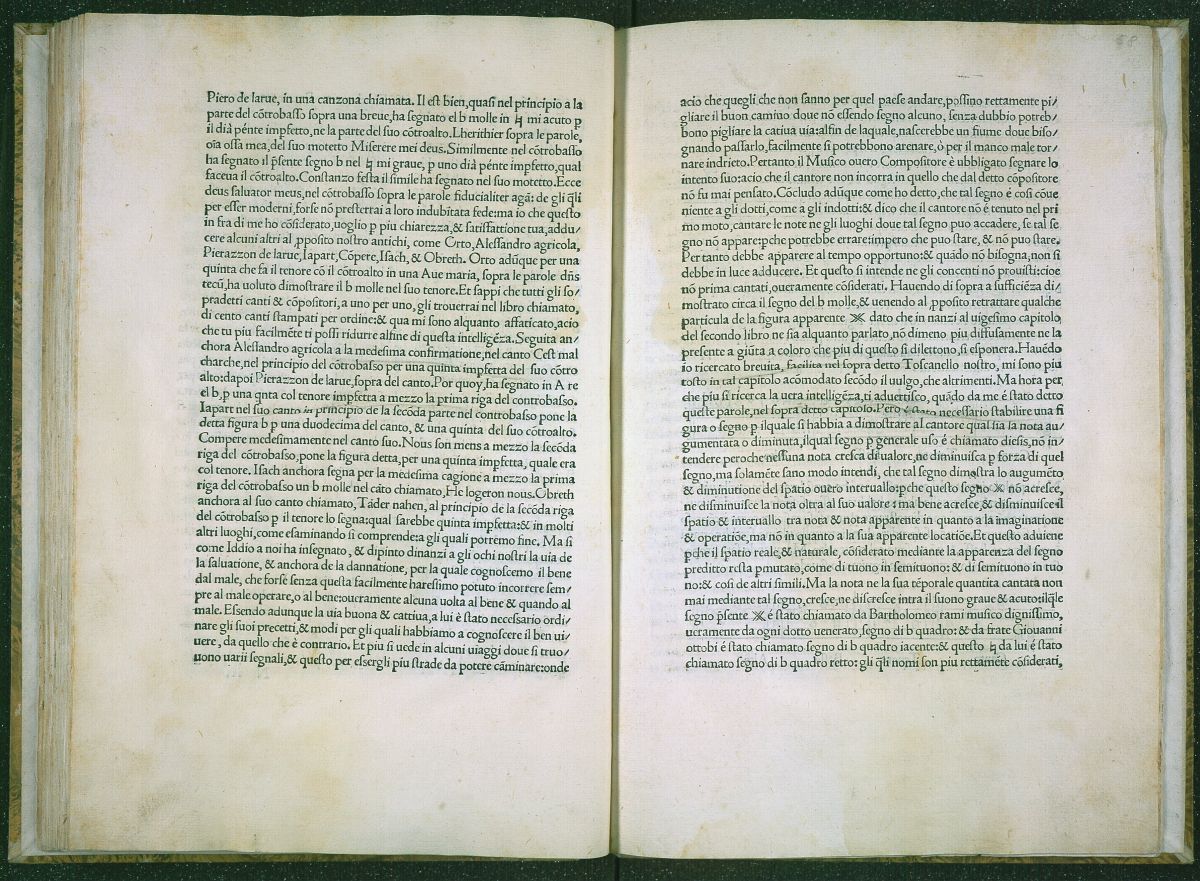 Piero de larue, in una canzona chiamata. Il est bien, quasi nel principio a la
parte del cõtrobasso sopra una breue, ha segnato el b molle in ♮ mi acuto p
il diã pẽnte impfetto, ne la parte del suo cõtroalto. Lherithier sopra le parole,
oĩa ossa mea, del suo motetto Miserere mei deus. Similmente nel cõtrobasso
ha segnato il p̃sente segno b nel ♮ mi graue, p uno diã pẽnte impfetto, qual
faceua il cõtroalto. Constanzo festa il simile ha segnato nel suo motetto. Ecce
deus saluator meus, nel cõtrobasso sopra le parole fiducialiter agã: de gli q̃li
per esser moderni, forse nõ presterrai a loro indubitata fede: ma io che questo
in fra di me ho cõsiderato, uoglio p piu chiarezza, & satisfattione tua, addu/
cere alcuni altri al ꝓposito nostro antichi, come Orto, Alessandro agricola,
Pierazzon de larue, Iapart, Cõpere, Isach, & Obreth. Orto adũque per una
quinta che fa il tenore cõ il cõtroalto in una Aue maria, sopra le parole dñs
tecũ, ha uoluto dimostrare il b molle nel suo tenore. Et sappi che tutti gli so/
pradetti canti & cõpositori, a uno per uno, gli trouerrai nel libro chiamato,
di cento canti stampati per ordine: & qua mi sono alquanto affaticato, acio
che tu piu facilmẽte ti possi ridurre alfine di questa intelligẽza. Seguita an/
chora Alessandro agricola a la medesima confirmatione, nel canto Cest mal
charche, nel principio del cõtrobasso per una quinta impfetta del suo cõtro
alto: dapoi Pierazzon de larue, sopra del canto. Por quoy, ha segnato in A re
el b, p una qnta col tenore impfetta a mezzo la prima riga del controbasso.
Iapart nel suo canto in principio de la secõda parte nel controbasso pone la
detta figura b p una duodecima del canto, & una quinta del suo cõtroalto.
Compere medesimamente nel canto suo. Nous son miens a mezzo la secõda
riga del cõtrobasso, pone la figura detta, per una quinta impfetta, quale era
col tenore. Isach anchora segna per la medesima cagione a mezzo la prima
riga del cõtrobasso un b molle nel cãto chiamato, He logeron nous. Obreth
anchora al suo canto chiamato, Tãder nahen, al principio de la secõda riga
del cõtrobasso p il tenore lo segna: qual sarebbe quinta impfetta: & in molti
altri luoghi, come esaminando si comprende: a gli quali porremo fine. Ma si
come Iddio a noi ha insegnato, & dipinto dinanzi a gli ochi nostri la uia de
la saluatione, & anchora de la dannatione, per la quale cognoscemo il bene
dal male, che forse senza questa facilmente haressimo potuto incorrere sem/
pre al male operare, o al bene: oueramente alcuna uolta al bene & quando al
male. Essendo adunque la uia buona & cattiua, a lui è stato necessario ordi/
nare gli suoi precetti, & modi per gli quali habbiamo a cognoscere il ben ui/
uere, da quello che è contrario. Et piu si uede in alcuni uiaggi doue si truo/
uono uarii segnali, & questo per essergli piu strade da potere cãminare: onde
58
acio che quegli che non sanno per quel paese andare, possino rettamente pi/
gliare il buon camino doue nõ essendo segno alcuno, senza dubbio potreb/
bono pigliare la catiua uia: alfin de laquale, nascerebbe un fiume doue biso/
gnando passarlo, facilmente si potrebbono arenare, ò per il manco male tor/
nare indrieto. Pertanto il Musico ouero Compositore è ubbligato segnare lo
intento suo: acio che il cantore non incorra in quello che dal detto cõpositore
nõ fu mai pensato. Cõcludo adũque come ho detto, che tal segno é cosi cõue
niente a gli dotti, come a gli indotti: & dico che il cantore nõ é tenuto nel pri
mo moto, cantare le note ne gli luoghi doue tal segno puo accadere, se tal se
gno nõ appare: pche potrebbe errare: impero che puo stare, & nõ puo stare.
Per tanto debbe apparere al tempo opportuno: & quãdo nõ bisogna, non si
debbe in luce adducere. Et questo si intende ne gli concenti nõ prouisti: cioe
nõ prima cantati, oueramente cõsiderati. Hauendo di sopra a sufficiẽza di/
mostrato circa il segno del b molle, & uenendo al ꝓposito retrattare qualche
particula de la figura apparente ※ dato che in nanzi al uigesimo capitolo
del secondo libro ne sia alquanto parlato, nõ dimeno piu diffusamente ne la
presente a giũta a coloro che piu di questo si dilettono, si esponera. Hauẽdo
io ricercato breuita, facilita nel sopra detto Toscanello nostro, mi sono piu
tosto in tal capitolo acõmodato secõdo il uulgo, che altrimenti. Ma hora per
che piu si ricerca la uera intelligẽza, ti aduertisco, quãdo da me é stato detto
queste parole, nel sopra detto capitolo. Pero é stato necessario stabilire una fi
gura o segno p il quale si habbia a dimostrare al cantore qual sia la nota au/
gumentata o diminuta, ilqual segno p generale uso é chiamato diesis, nõ in/
tendere peroche nessuna nota cresca di ualore, ne diminuisca p forza di quel
segno, ma solamẽte sano modo intendi, che tal segno dimostra lo augumẽto
& diminutione del spatio ouero interuallo: pche questo segno ※ nõ acresce,
ne disminuisce la nota oltra al suo ualore: ma bene acresce, & disminuisce il
spatio & interuallo tra nota & nota apparente in quanto a la imaginatione
& operatiõe, ma nõ in quanto a la sua apparente locatiõe. Et questo aduiene
pche il spatio reale, & naturale, cõsiderato mediante la apparenza del segno
preditto resta pmutato, come di tuono in semituono: & di semituono in tuo
no: & cosi de altri simili. Ma la nota ne la sua tẽporale quantita cantata non
mai mediante tal segno, cresce, ne discresce intra il suono graue & acuto: ilq̃le
segno p̃sente ※ é stato chiamato da Bartholomeo rami musico dignissimo,
ueramente da ogni dotto uenerato, segno di b quadro: & da frate Giouanni
ottobi é stato chiamato segno di b quadro iacente: & questo ♮ da lui é stato
chiamato segno di b quadro retto: gli q̃li nomi son piu rettamẽte cõsiderati,